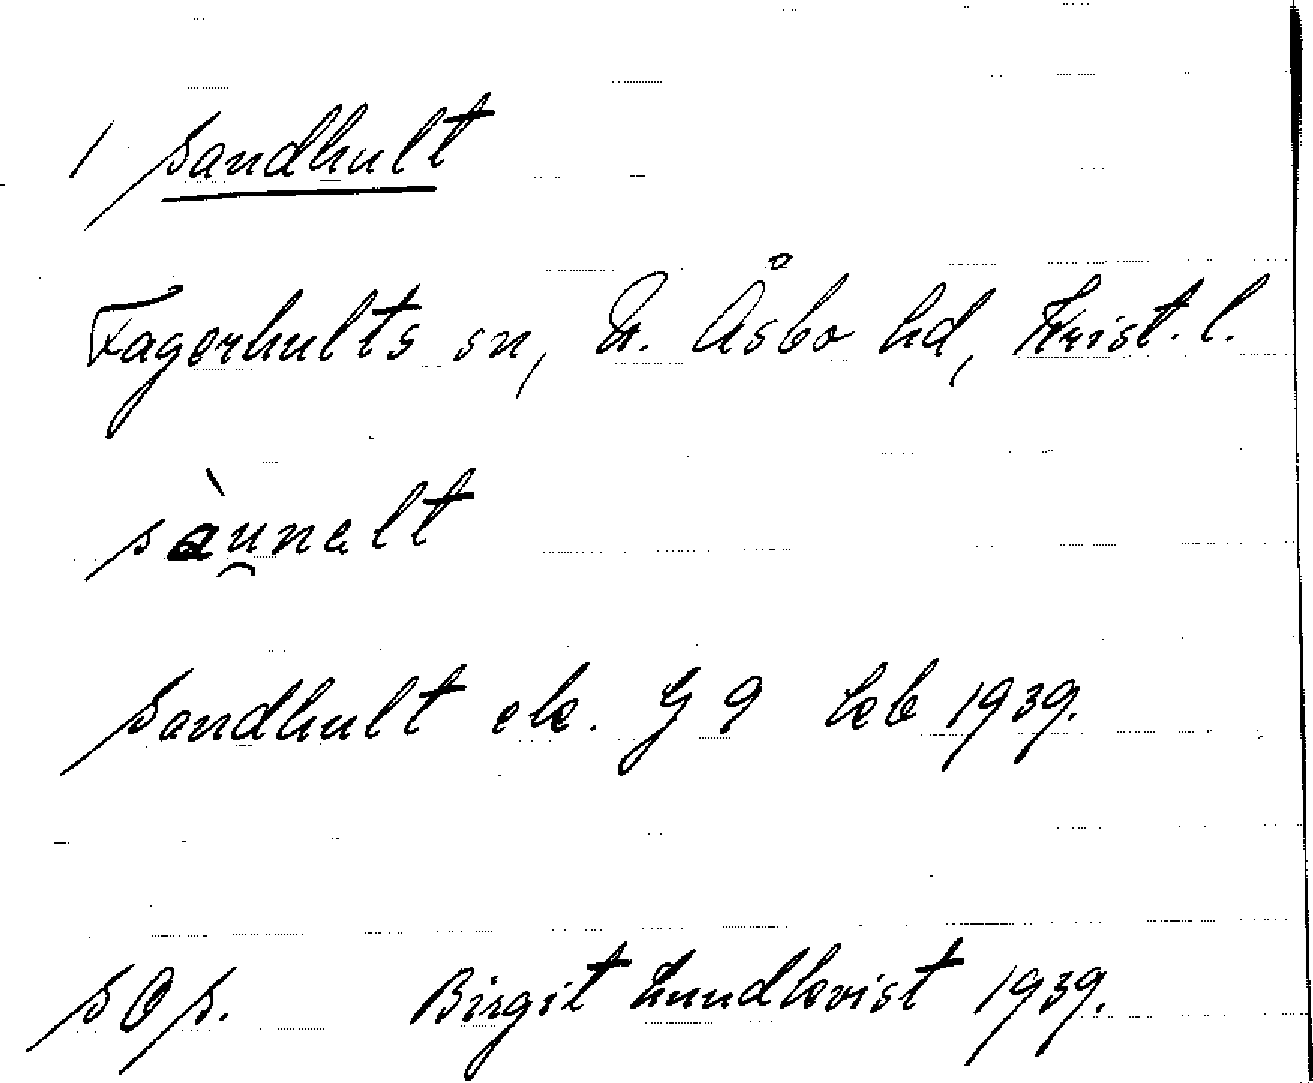 1 Sandhult
Fagerhults sn, N. Åsbo hd, Krist. l.
sàu̯nalt
Sandhult ek. G 9 kkb 1939.
SOS. Birgit Lundkvist 1939.